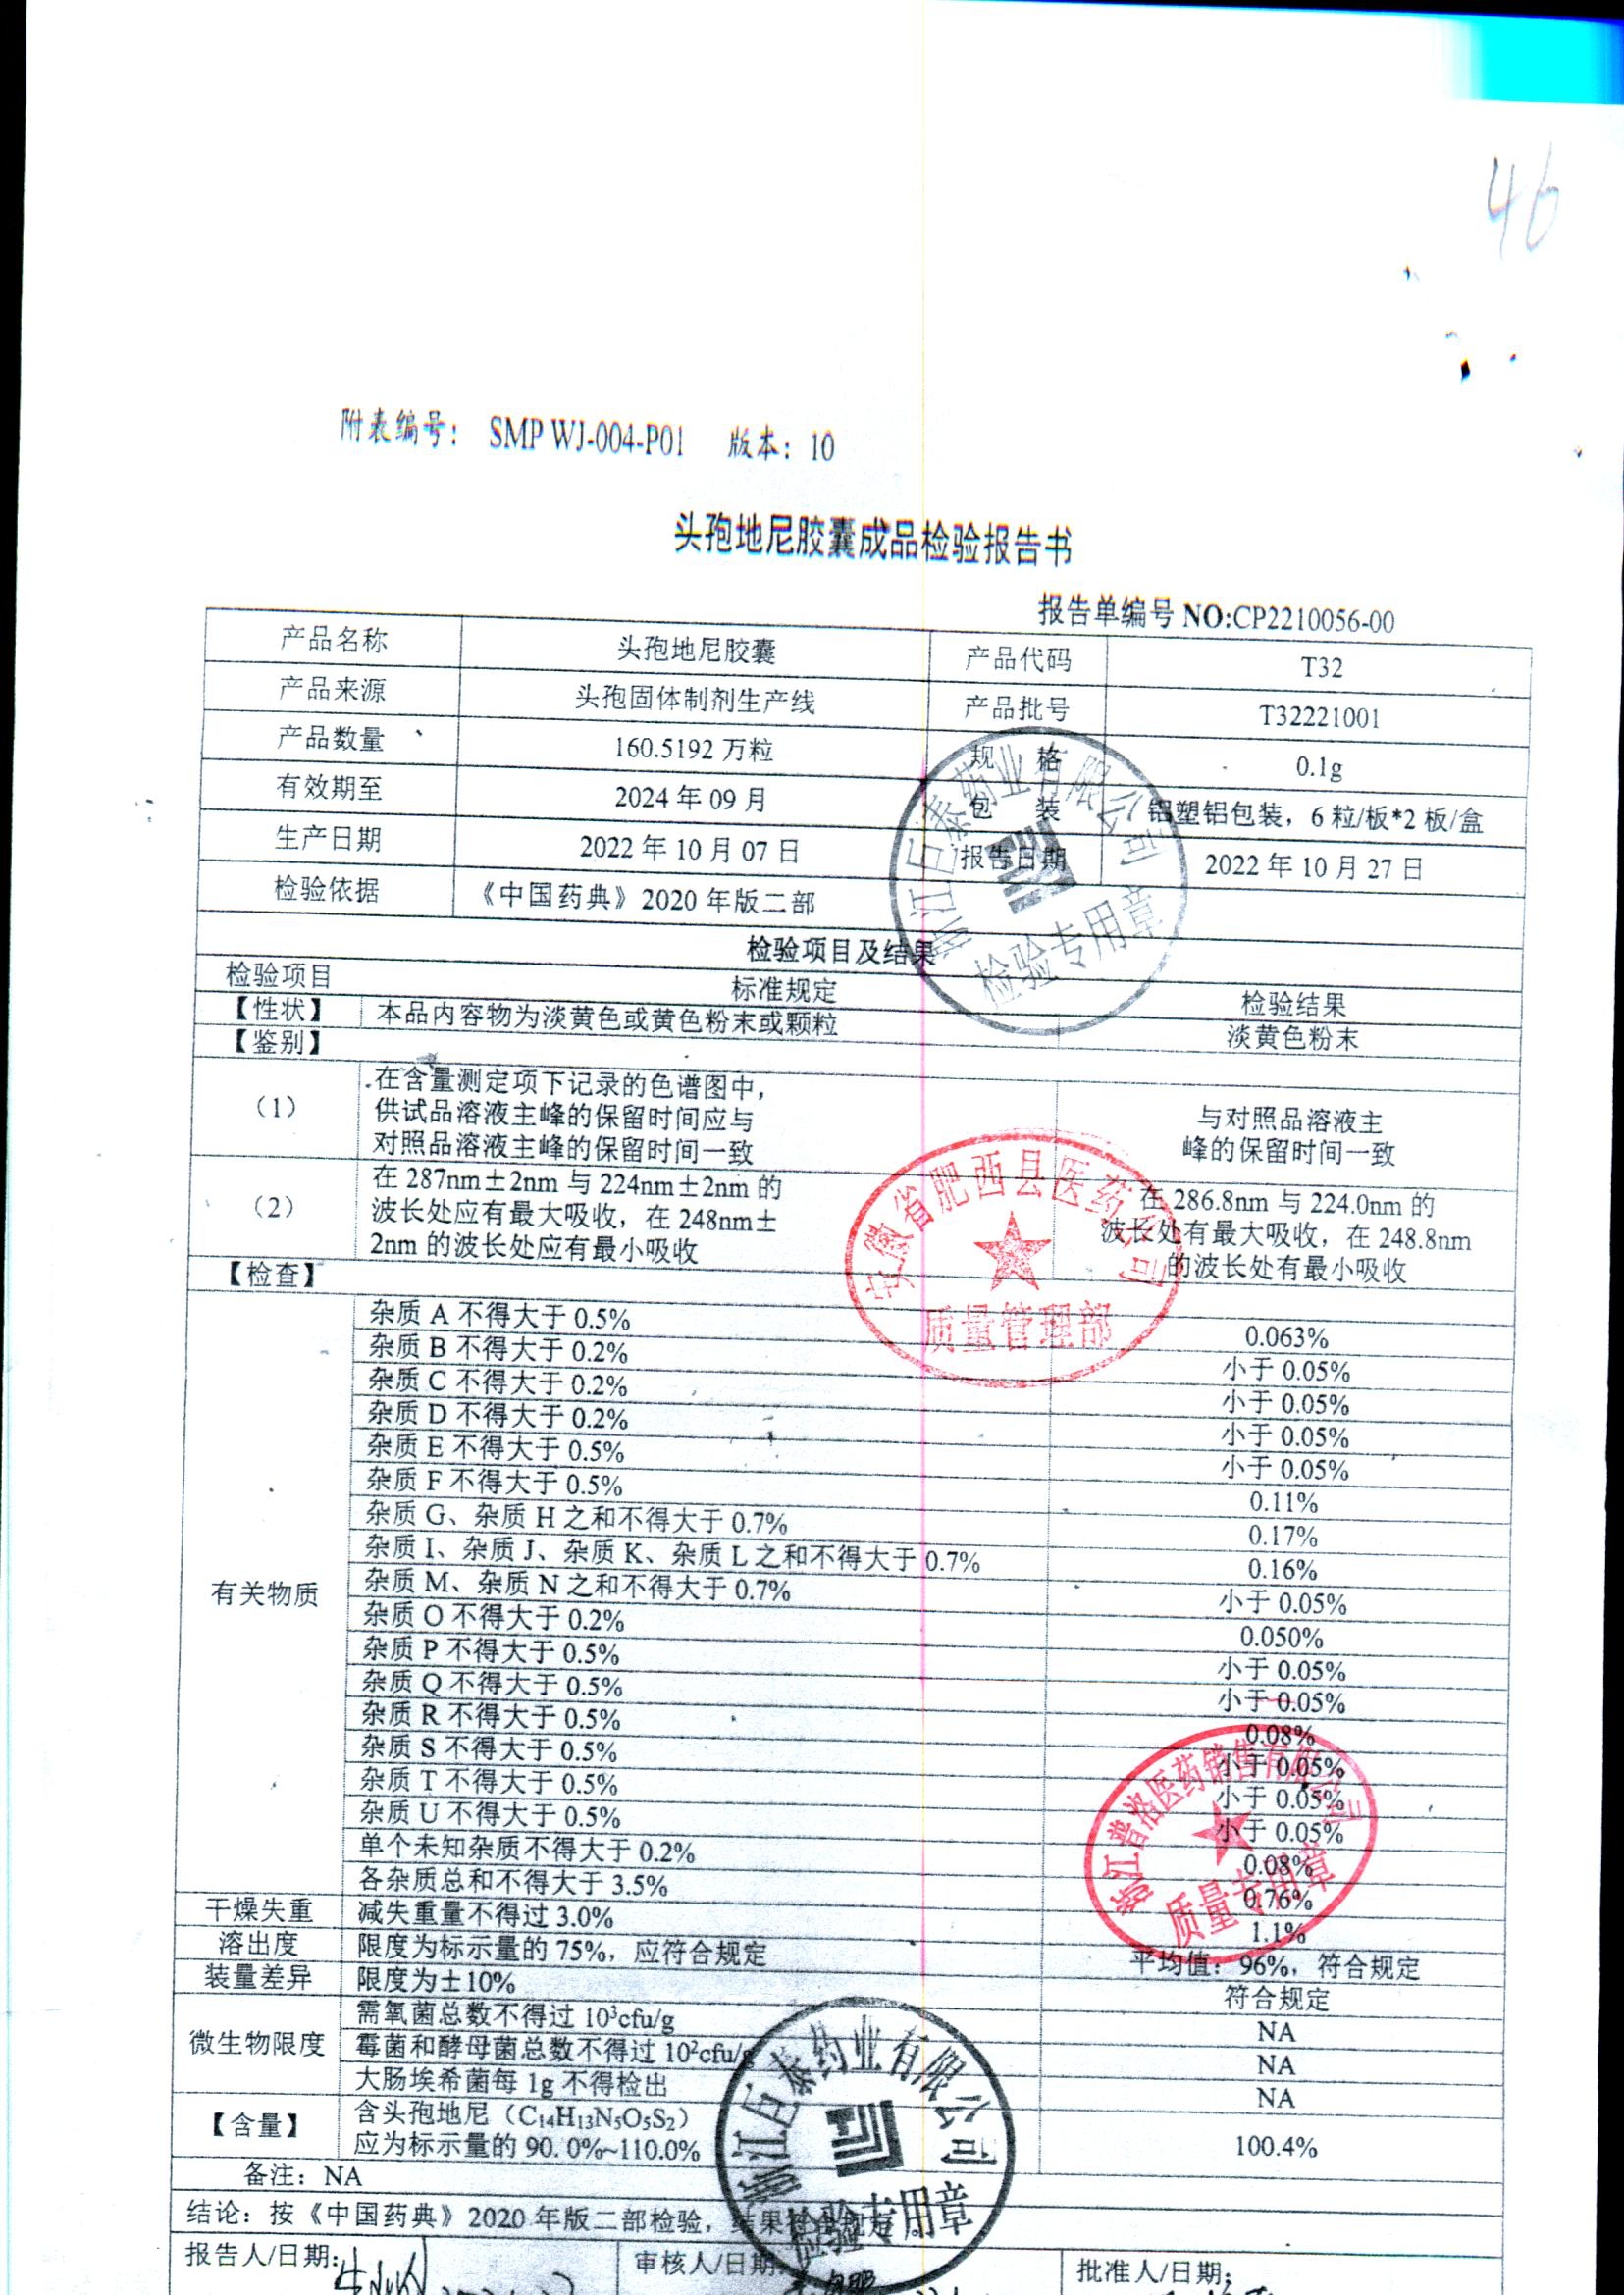 46
附表编号： SMP WJ-004-P01 版本：10
头孢地尼胶囊成品检验报告书
报告单编号 NO:CP2210056-00
产品名称 头孢地尼胶囊 产品代码 T32
产品来源 头孢固体制剂生产线 产品批号 T32221001
产品数量 160.5192 万粒 规 格 0.1g
有效期至 2024 年 09 月 包 装 铝塑铝包装，6 粒/板*2 板/盒
生产日期 2022 年 10 月 07 日 报告日期 2022 年 10 月 27 日
检验依据 《中国药典》2020 年版二部
浙江巨泰药业有限公司
检验专用章
检验项目及结果
检验项目 标准规定 检验结果
【性状】 本品内容物为淡黄色或黄色粉末或颗粒 淡黄色粉末
【鉴别】
（1） 在含量测定项下记录的色谱图中，
供试品溶液主峰的保留时间应与
对照品溶液主峰的保留时间一致
与对照品溶液主
峰的保留时间一致
（2） 在 287nm±2nm 与 224nm±2nm 的
波长处应有最大吸收，在 248nm±
2nm 的波长处应有最小吸收
在 286.8nm 与 224.0nm 的
波长处有最大吸收，在 248.8nm
的波长处有最小吸收
安徽省肥西县医药公司
质量管理部
【检查】
有关物质
杂质 A 不得大于 0.5% 0.063%
杂质 B 不得大于 0.2% 小于 0.05%
杂质 C 不得大于 0.2% 小于 0.05%
杂质 D 不得大于 0.2% 小于 0.05%
杂质 E 不得大于 0.5% 小于 0.05%
杂质 F 不得大于 0.5% 0.11%
杂质 G、杂质 H 之和不得大于 0.7% 0.17%
杂质 I、杂质 J、杂质 K、杂质 L 之和不得大于 0.7% 0.16%
杂质 M、杂质 N 之和不得大于 0.7% 小于 0.05%
杂质 O 不得大于 0.2% 0.050%
杂质 P 不得大于 0.5% 小于 0.05%
杂质 Q 不得大于 0.5% 小于 0.05%
杂质 R 不得大于 0.5% 0.08%
杂质 S 不得大于 0.5% 小于 0.05%
杂质 T 不得大于 0.5% 小于 0.05%
杂质 U 不得大于 0.5% 小于 0.05%
单个未知杂质不得大于 0.2% 0.08%
各杂质总和不得大于 3.5% 0.76%
浙江普洛医药销售有限公司
质量专用章
干燥失重 减失重量不得过 3.0% 1.1%
溶出度 限度为标示量的 75%，应符合规定 平均值：96%，符合规定
装量差异 限度为±10% 符合规定
微生物限度
需氧菌总数不得过 10³cfu/g NA
霉菌和酵母菌总数不得过 10²cfu/g NA
大肠埃希菌每 1g 不得检出 NA
【含量】 含头孢地尼（C₁₄H₁₃N₅O₅S₂）
应为标示量的 90. 0%~110.0% 100.4%
备注：NA
结论：按《中国药典》2020 年版二部检验，结果符合规定
浙江巨泰药业有限公司
检验专用章
报告人/日期: 审核人/日期: 批准人/日期: